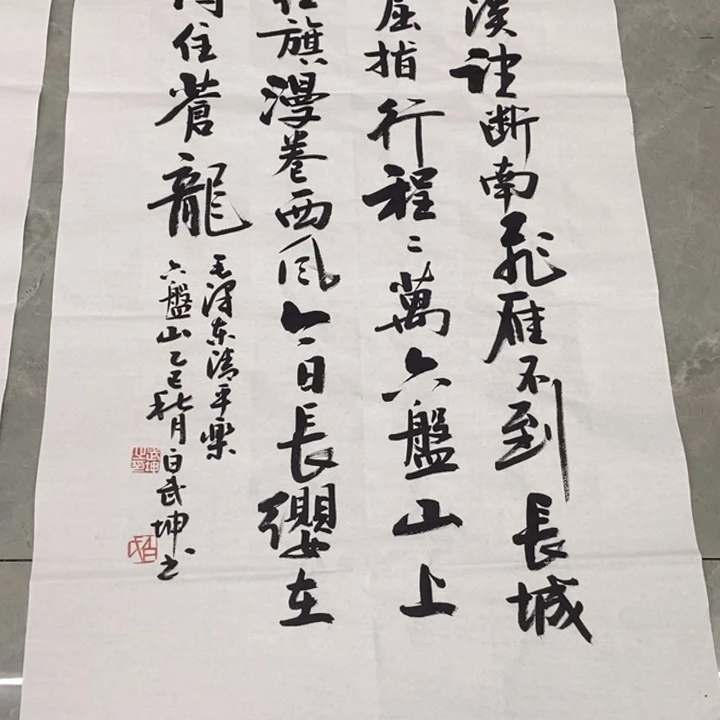 淡望断南飛雁不到長城
屈指行程二萬六盤山上
旗漫卷西風今日長纓在
住蒼龍
毛澤东清平樂
六盤山乙巳秋月白武坤书